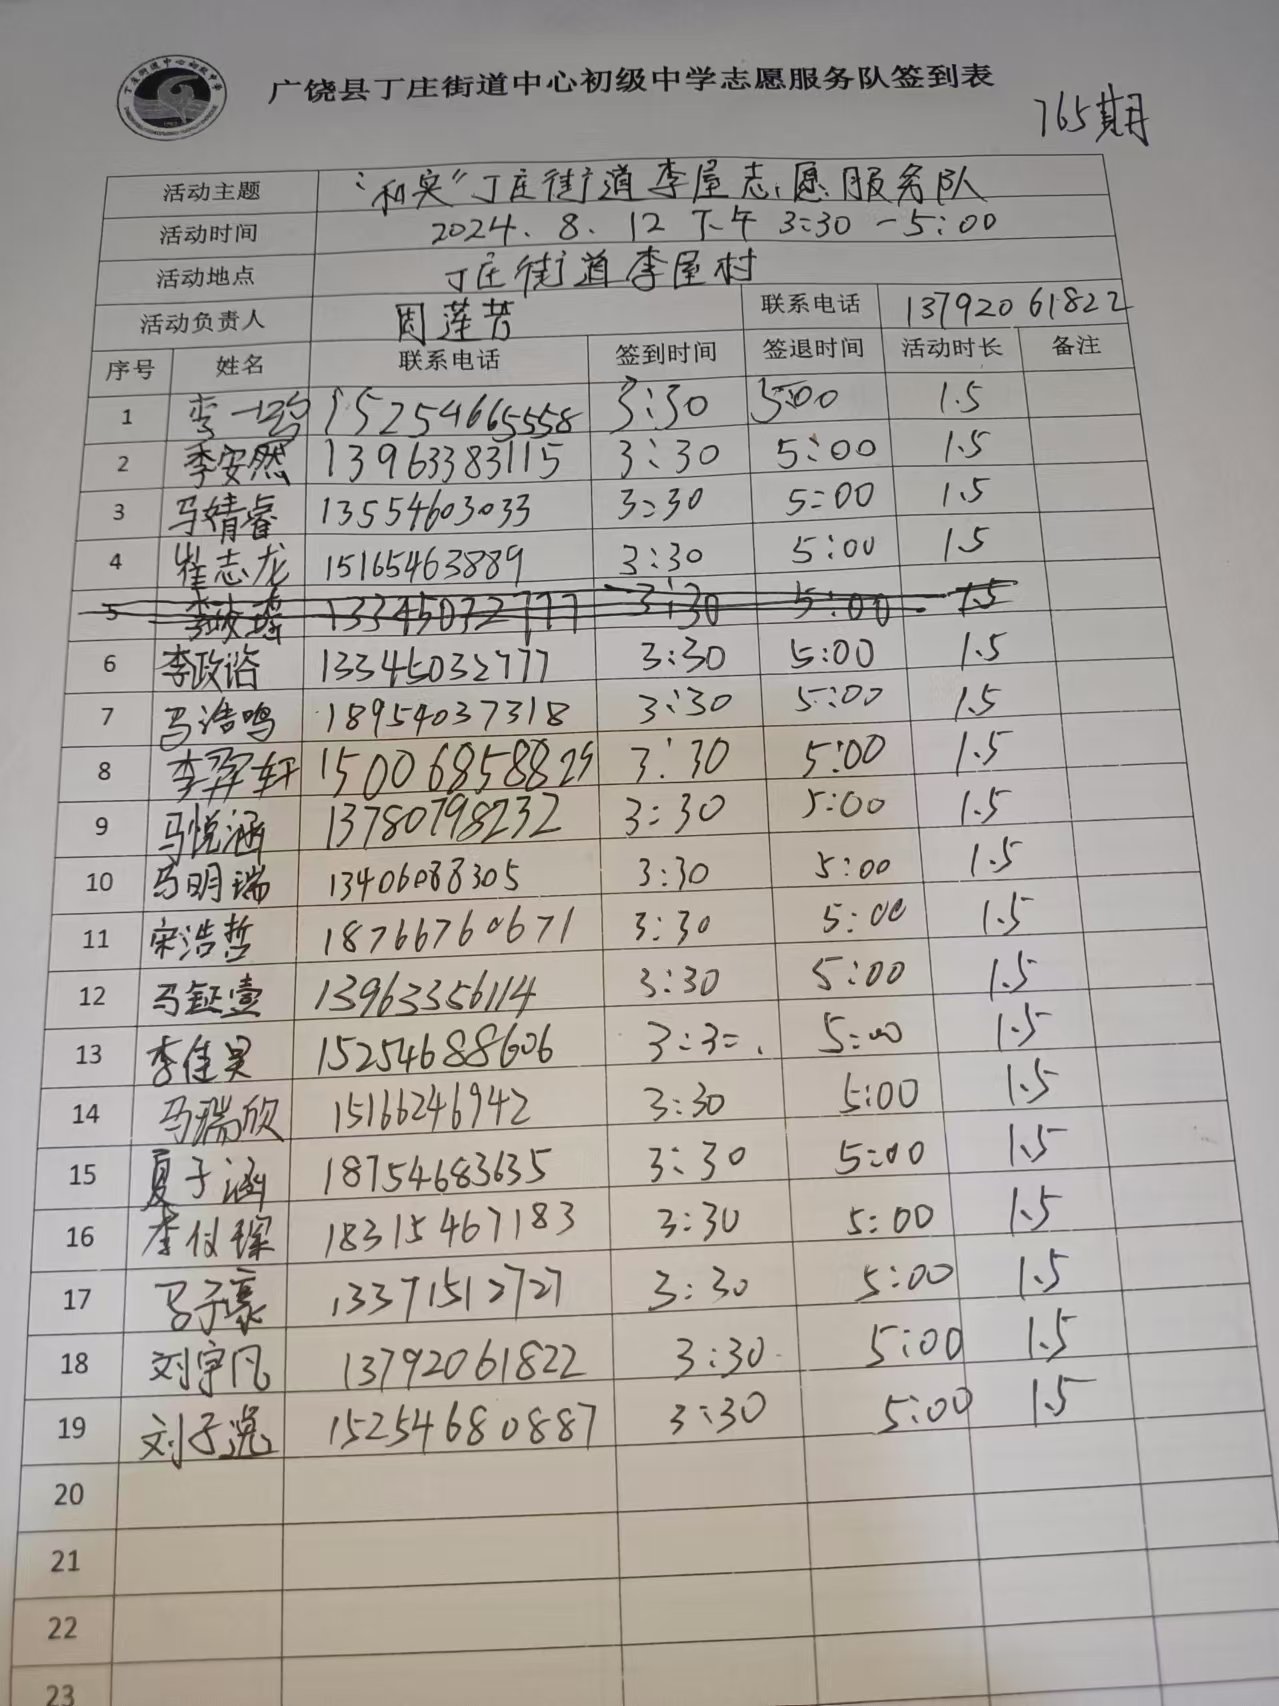 广饶县丁庄街道中心初级中学志愿服务队签到表
765期
活动主题 "和实"丁庄街道李屋志愿服务队
活动时间 2024.8.12 下午 3:30-5:00
活动地点 丁庄街道李屋村
活动负责人 周莲芳 联系电话 13792061822
序号 姓名 联系电话 签到时间 签退时间 活动时长 备注
1 李一鸣 15254665558 3:30 5:00 1.5
2 李安然 13963383115 3:30 5:00 1.5
3 马婧睿 13554603033 3:30 5:00 1.5
4 崔志龙 15165463889 3:30 5:00 1.5
5 13345032777 3:30 5:00 1.5
6 李政谘 13345032777 3:30 5:00 1.5
7 马浩鸣 18954037318 3:30 5:00 1.5
8 李羿轩 15006858829 3:30 5:00 1.5
9 马悦涵 13780798232 3:30 5:00 1.5
10 马明瑞 13406088305 3:30 5:00 1.5
11 宋浩哲 18766760671 3:30 5:00 1.5
12 马钲壹 13963356114 3:30 5:00 1.5
13 李佳昊 15254688606 3:30 5:00 1.5
14 马瑞欣 15166246942 3:30 5:00 1.5
15 夏子涵 18754683635 3:30 5:00 1.5
16 李仪琛 18315467183 3:30 5:00 1.5
17 马子豪 13371512727 3:30 5:00 1.5
18 刘宇凡 13792061822 3:30 5:00 1.5
19 刘子逸 15254680887 3:30 5:00 1.5
20
21
22
23